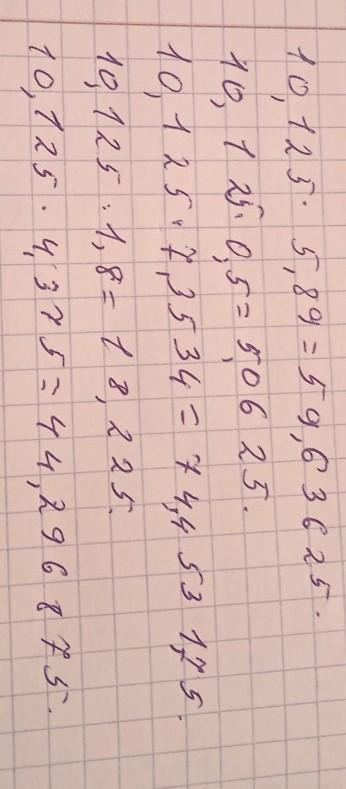 10,125 · 5,89 = 59,63625.
10,125 · 0,5 = 5,0625.
10,125 · 7,3534 = 74,4531,75.
10,125 · 1,8 = 18,225.
10,125 · 4,375 = 44,296875.